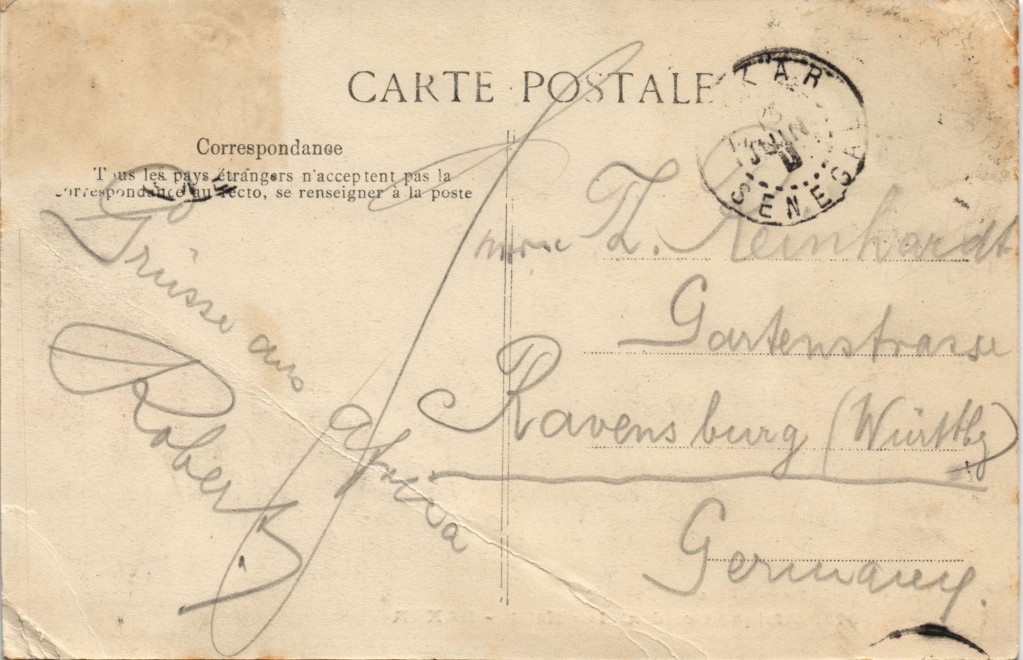 CARTE POSTALE
Correspondance
Tous les pays étrangers n'acceptent pas la
correspondance au recto, se renseigner à la poste
Grüsse aus Africa
Robert
KAR
JUIN
SENEGAL
T. Reinhardt
Gartenstrasse
Ravensburg (Württbg)
Germany.